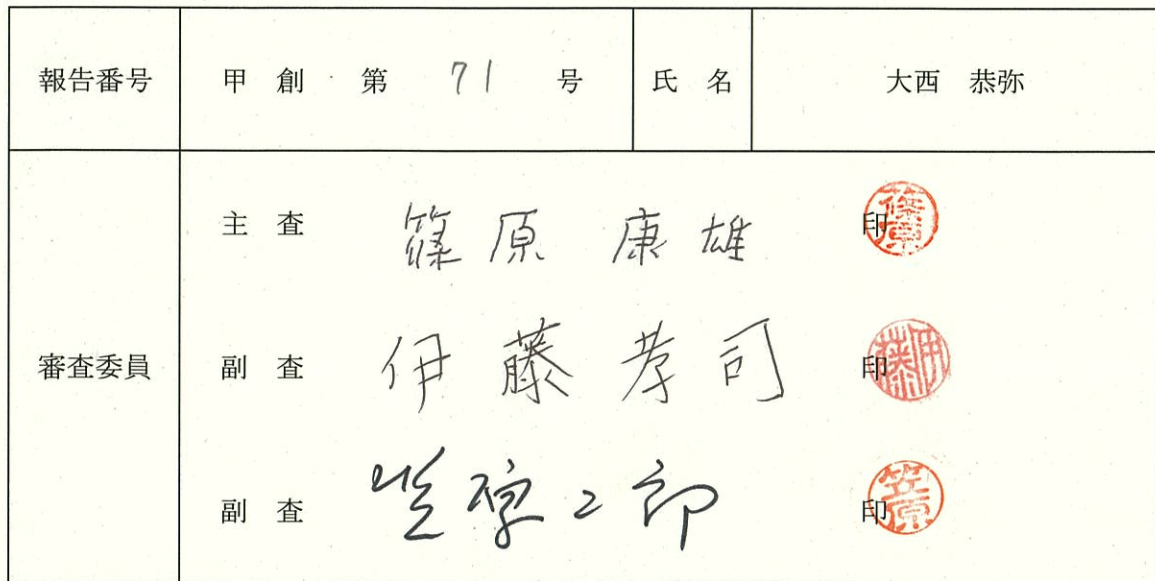 報告番号 甲 創 第 71 号 氏 名 大西 恭弥
主 査 篠原 康雄 印 篠原
審査委員
副 査 伊藤 孝司 印 伊藤
副 査 笠原二郎 印 笠原